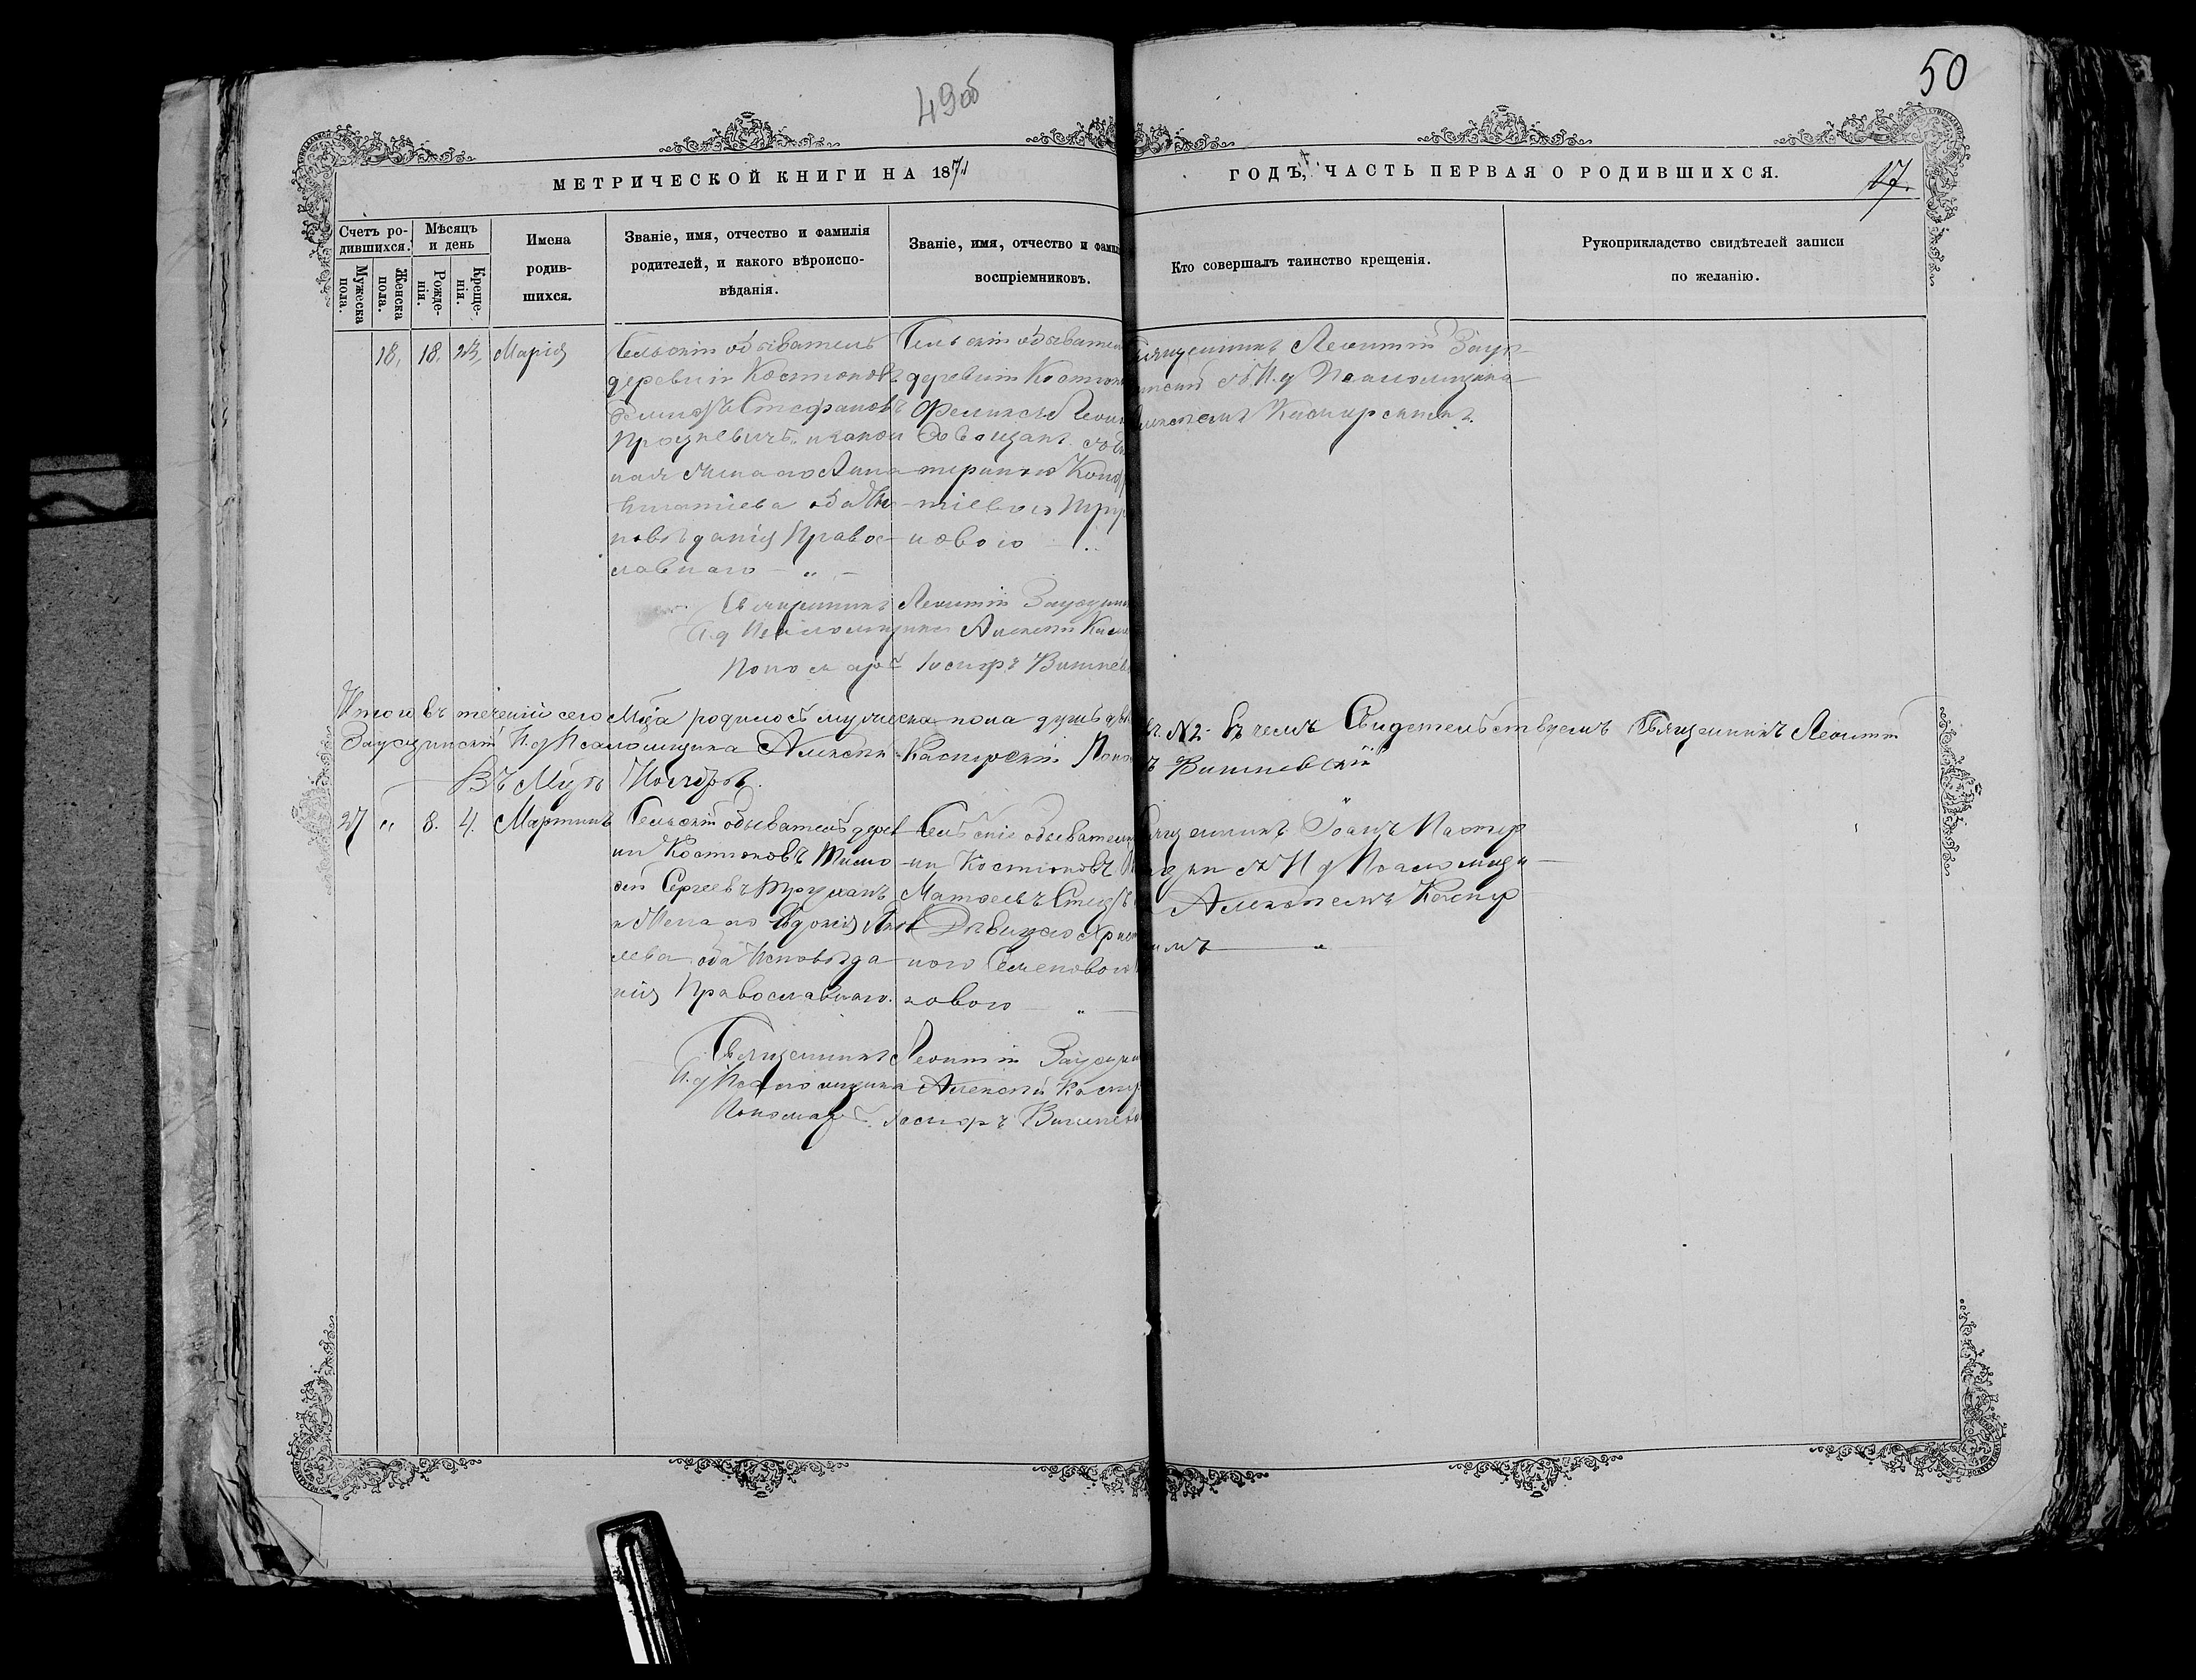 49об
50
МЕТРИЧЕСКОЙ КНИГИ НА 1871
ГОДЪ, ЧАСТЬ ПЕРВАЯ О РОДИВШИХСЯ.
17.
Счетъ ро-
дившихся.
Мужеска
пола.
Женска
пола.
Мѣсяцъ
и день
Рожде-
нія.
Креще-
нія.
Имена
родив-
шихся.
Званіе, имя, отчество и фамилія
родителей, и какого вѣроиспо-
вѣданія.
Званіе, имя, отчество и фамил
воспріемниковъ.
Кто совершалъ таинство крещенія.
Рукоприкладство свидѣтелей записи
по желанію.
18. 18. 23. Марія
Сельскій обыватель
деревни Костюковъ
Стефановъ
и законная
жена его Анна
Игнатіева оба Ис-
повѣданія Правос-
лавнаго
Сельскій обывател
деревни Костюк
Феликсъ Леон
нового
Священникъ Леонтій Заус-
цинскій съ И.д Псаломщика
Алексѣемъ Каспирскимъ
Священникъ Леонтій Заусцин
И.д Псаломщика Алексѣй Кас
Пономарь Іосифъ Вишнев
Итого въ теченіи сего Мца родилось мужеска пола душъ двѣ №2. въ чемъ Свидетельствуемъ Священникъ Леонтій
Заусцинскій И.д Псаломщика Алексѣй Каспирскій Поно ъ Вишневскій
Въ Мцѣ Ноябрѣ.
27 " 8. 4. Мартинъ
Сельскій обыватель дерев
ни Костюковъ Тимо
фей Сергеевъ Труханъ
и Жена его Евдокія
лева оба Исповѣда
нія Православнаго.
Сельскіе обыватели
ни Костюковъ
Матвей
Дѣвицею Хрис
ною Семеновою
ковою
Священникъ Іоанъ Пастер
нацкій съ И д Псаломщи
Алексѣемъ Каспир
имъ
Священникъ Леонтій Заусцин
И.д Псаломщика Алексѣй Каспи
Пономарь Іосифъ Вишнев